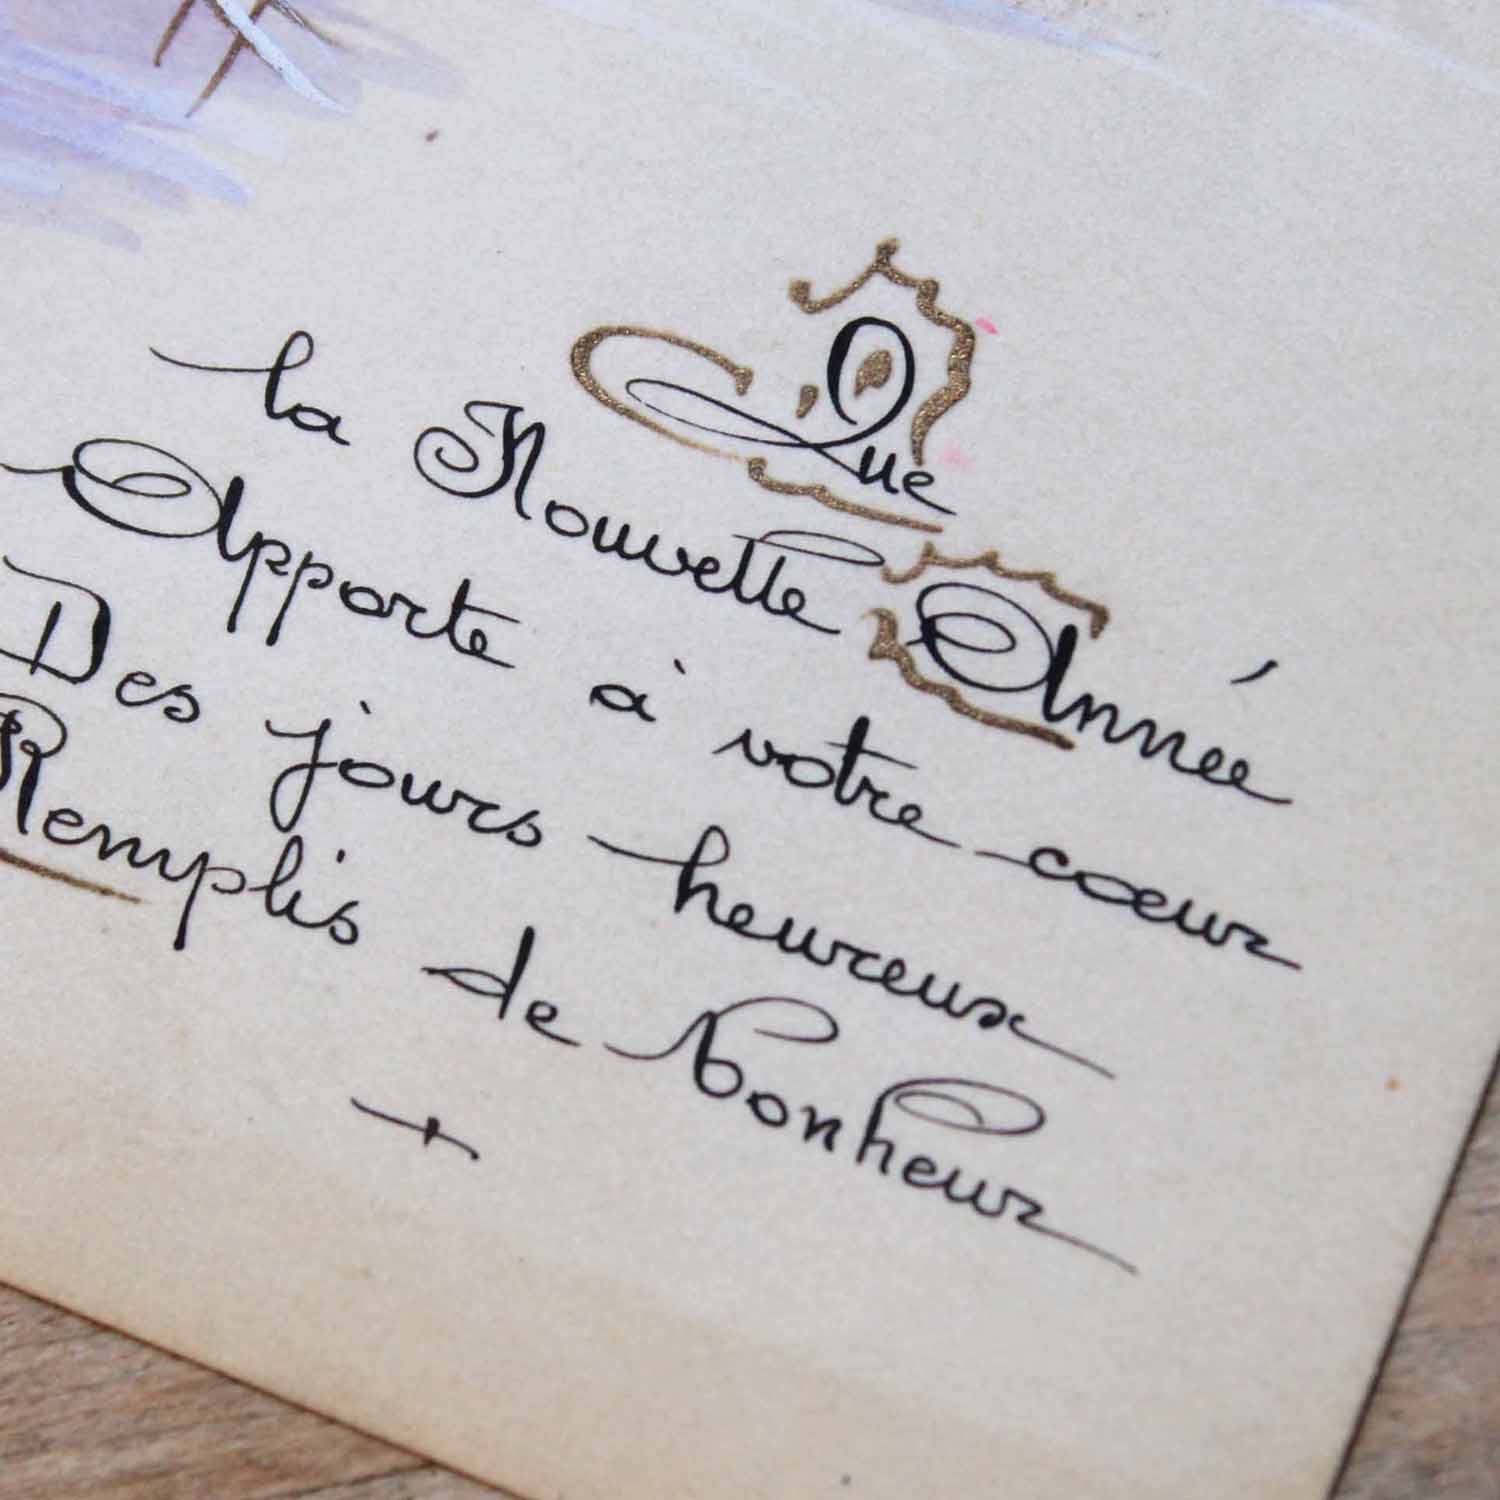 Que
la Nouvelle Année
Apporte à votre cœur
Des jours heureux
Remplis de bonheur